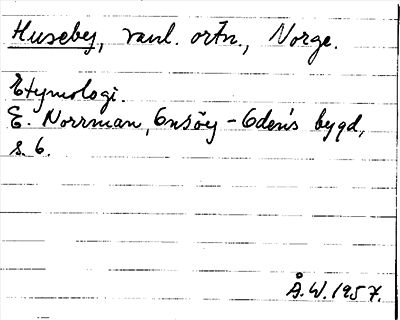 Huseby, vanl. ortn., Norge.
Etymologi.
E. Norrman, Ensöy - Edens bygd,
s. 6.
Å.W. 1957.